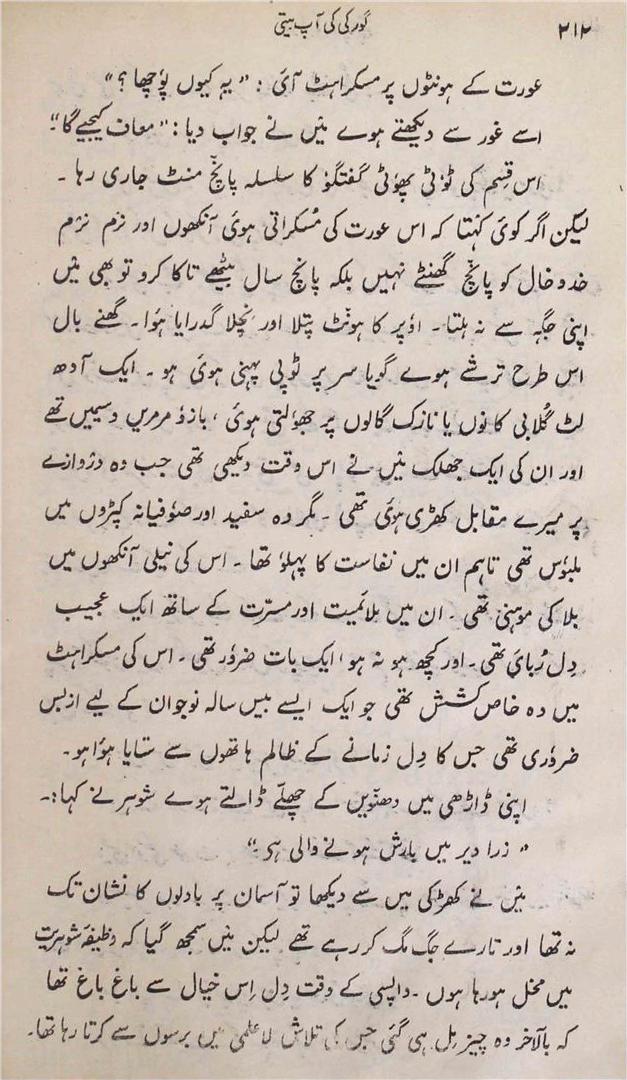 ۲۱۲
گورکی کی آپ بیتی
عورت کے ہونٹوں پر مسکراہٹ آئ : " یہ کیوں پوٗچھا ؟ "
اسے غور سے دیکھتے ہوے میَں نے جواب دیا : " معاف کیجیے گا "۔
اس قِسم کی ٹوٗٹی پھوٗٹی گفتگوٗ کا سلسلہ پانچ منٹ جاری رہا ۔
لیکن اگر کوئ کہتا کہ اس عورت کی مُسکراتی ہوئ آنکھوں اور نرَم نرَم
خد و خال کو پانچ گھنٹے نہیں بلکہ پانچ سال بیٹھے تاکا کرو تو بھی میَں
اپنی جگہ سے نہ ہلتا ۔ اوٗپر کا ہونٹ پتلا اور نِچلا گدرایا ہوٗا ۔ گھنے بال
اس طرح ترشے ہوے گویا سر پر ٹوپی پہنی ہوئ ہو ۔ ایک آدھ
لٹ گُلابی کانوں یا نازک گالوں پر جھوٗلتی ہوئ ، بازوٗ مرمریں و سیمیں تھے
اور ان کی ایک جھلک میَں نے اس وقت دیکھی تھی جب وہ دروازے
پر میرے مقابل کھڑی ہوئ تھی ۔ گر وہ سفید اور صوٗفیانہ کپڑوں میں
ملبوٗس تھی تاہم ان میں نفاست کا پہلوٗ تھا ۔ اس کی نیلی آنکھوں میں
بلا کی موہنی تھی ۔ ان میں ملائمیت اور مسرّت کے ساتھ ایک عجیب
دِل رُبائ تھی ۔ اور کچھ ہو نہ ہو ، ایک بات ضروٗر تھی ۔ اس کی مسکراہٹ
میں وہ خاص کشش تھی جو ایک ایسے بیس سالہ نوجوان کے لیے ازبس
ضروٗری تھی جس کا دِل زمانے کے ظالم ہاتھوں سے ستایا ہوٗا ہو ۔
اپنی ڈاڑھی میں دھنوّیں کے چھلّے ڈالتے ہوے شوہر نے کہا :۔
" ذرا دیر میں بارش ہونے والی ہی ۔ "
میَں نے کھڑکی میں سے دیکھا تو آسمان پر بادلوں کا نشان تک
نہ تھا اور تارے جگ مگ کر رہے تھے لیکن میَں سمجھ گیا کہ وظیفۂ شوہریت
میں مخل ہو رہا ہوں ۔ واپسی کے وقت دِل اِس خیال سے باغ باغ تھا
کہ بالآخر وہ چیز مِل ہی گئی جس کی تلاش لاعلمی میں برسوں سے کرتا رہا تھا ۔